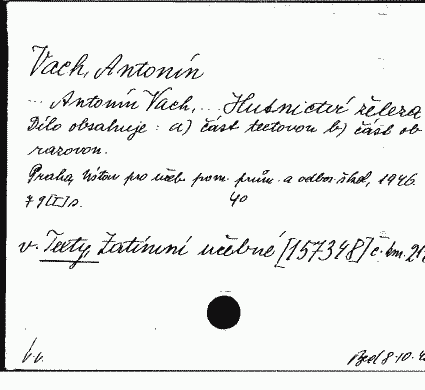 Vach, Antonín
... Antonín Vach, ... Hutnictví železa
Dílo obsahuje: a) část textovou b) část ob-
razovou.
Praha, Ústav pro učeb. pom. prům. a odbor. škol, 1946.
79 [I] s. 4°
v. Texty, Zatímní učebné [157348] č. km. 21